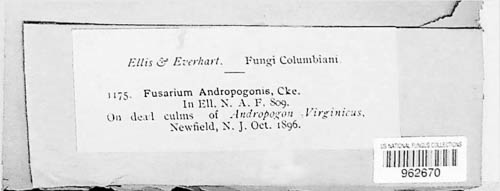 Ellis & Everhart. Fungi Columbiani
1175. Fusarium Andropogonis, Cke.
In Ell. N. A. F. 809.
On dead culms of Andropogon Virginicus,
Newfield, N. J. Oct. 1896.
US NATIONAL FUNGUS COLLECTIONS
962670